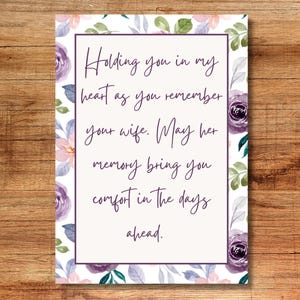 Holding you in my
heart as you remember
your wife. May her
memory bring you
comfort in the days
ahead.